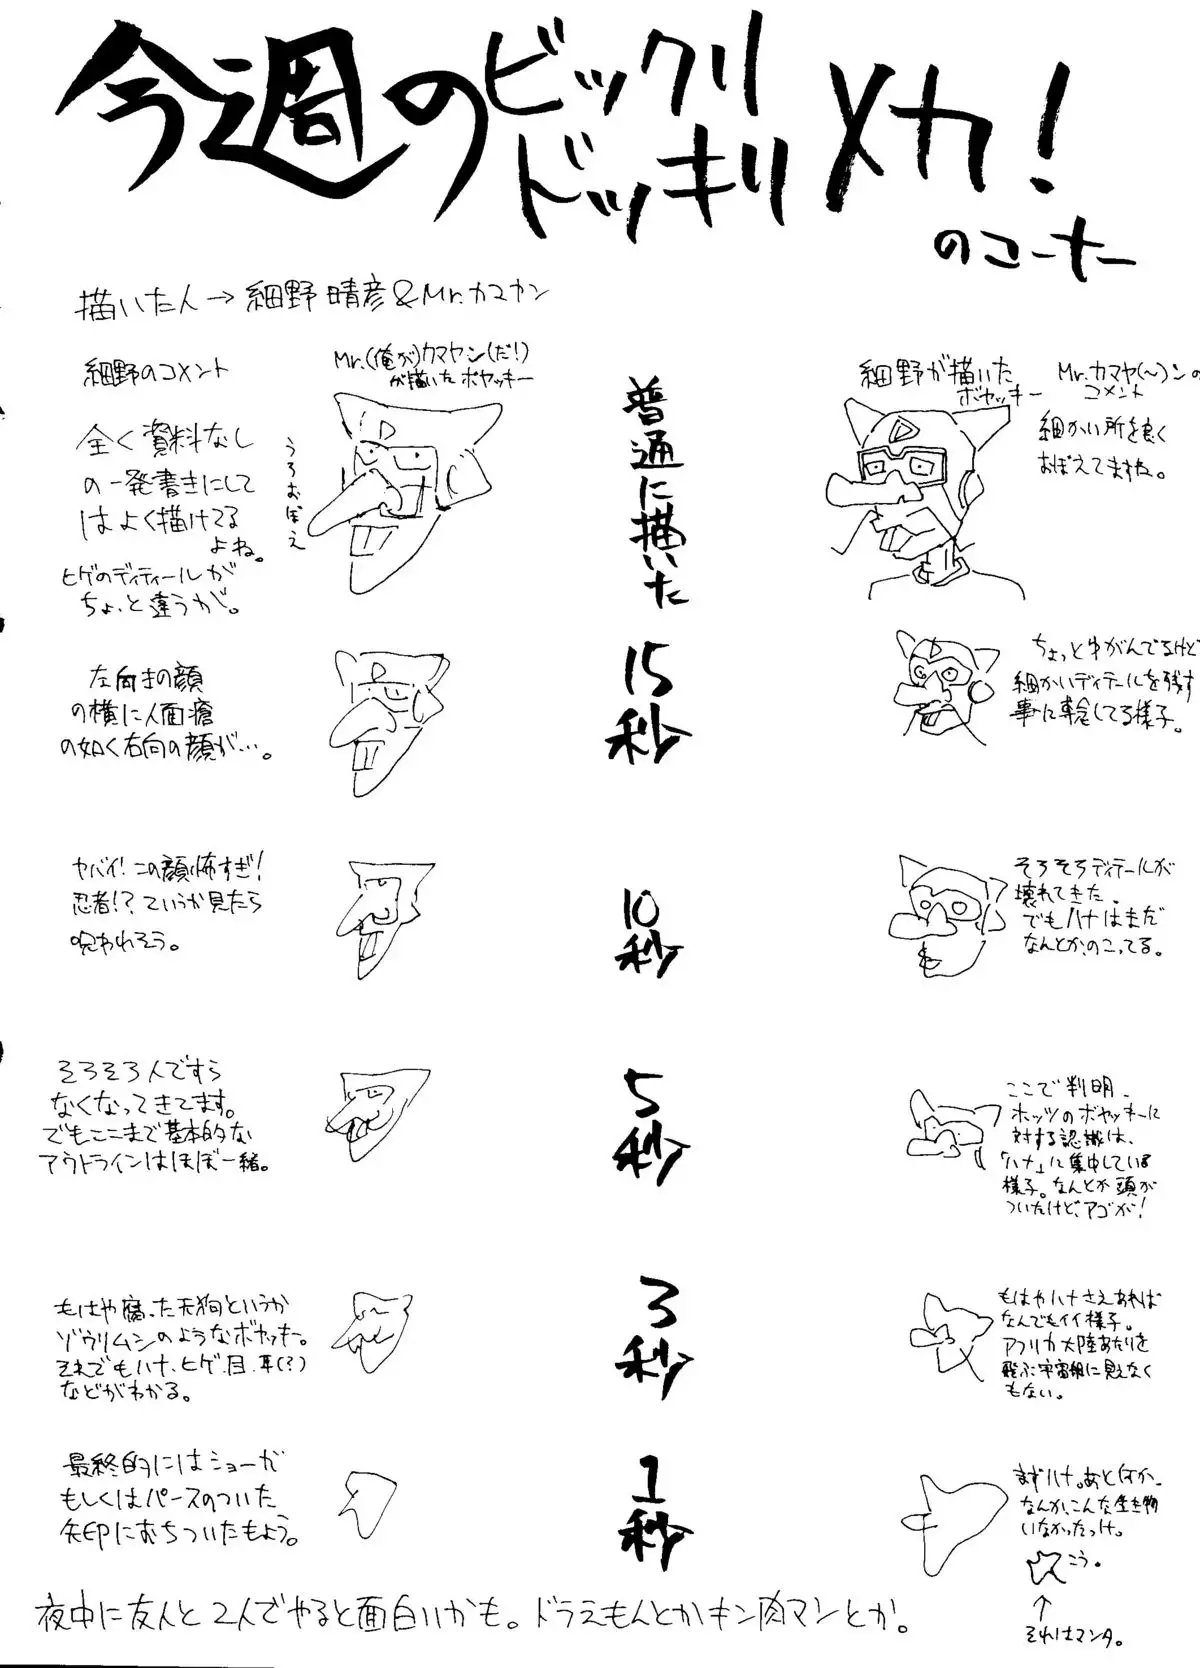 今週のビックリ
ドッキリ
メカ！
のコーナー
描いた人→細野 晴彦&Mr.カマヤン
細野のコメント
全く資料なし
の一発書きにして
はよく描けてる
よね。
ヒゲのディティールが
ちょっと違うが。
Mr.(俺が)カマヤン(だ!)
が描いたボヤッキー
うろおぼえ
普通に描いた
細野が描いた
ボヤッキー
Mr.カマヤ(〜)ンの
コメント
細かい所を良く
おぼえてますね。
左向きの顔
の横に人面瘡
の如く右向の顔が…。
15秒
ちょっとゆがんでるけど
細かいディテールを残す
事に専念してる様子。
ヤバイ!この顔怖すぎ!
忍者!?ていうか見たら
呪われそう。
10秒
そろそろディテールが
壊れてきた。
でもハナはまだ
なんとかのこってる。
そろそろ人ですら
なくなってきてます。
でもここまで基本的な
アウトラインはほぼ一緒。
5秒
ここで判明、
ホッツのボヤッキーに
対する認識は、
「ハナ」に集中している
様子。なんとか頭が
ついたけど、アゴが!
もはや腐った天狗というか
ゾウリムシのようなボヤッキー。
それでもハナ、ヒゲ、目、耳(?)
などがわかる。
3秒
もはやハナさえあれば
なんでもイイ様子。
アフリカ大陸あたりを
飛ぶ宇宙船に見えなく
もない。
最終的にはショーガ
もしくはパースのついた
矢印におちついたもよう。
1秒
まずハナ。あと何か、
なんか、こんな生き物
いなかったっけ。
こう。
↑
それはマンタ。
夜中に友人と2人でやると面白いかも。ドラえもんとかキン肉マンとか。